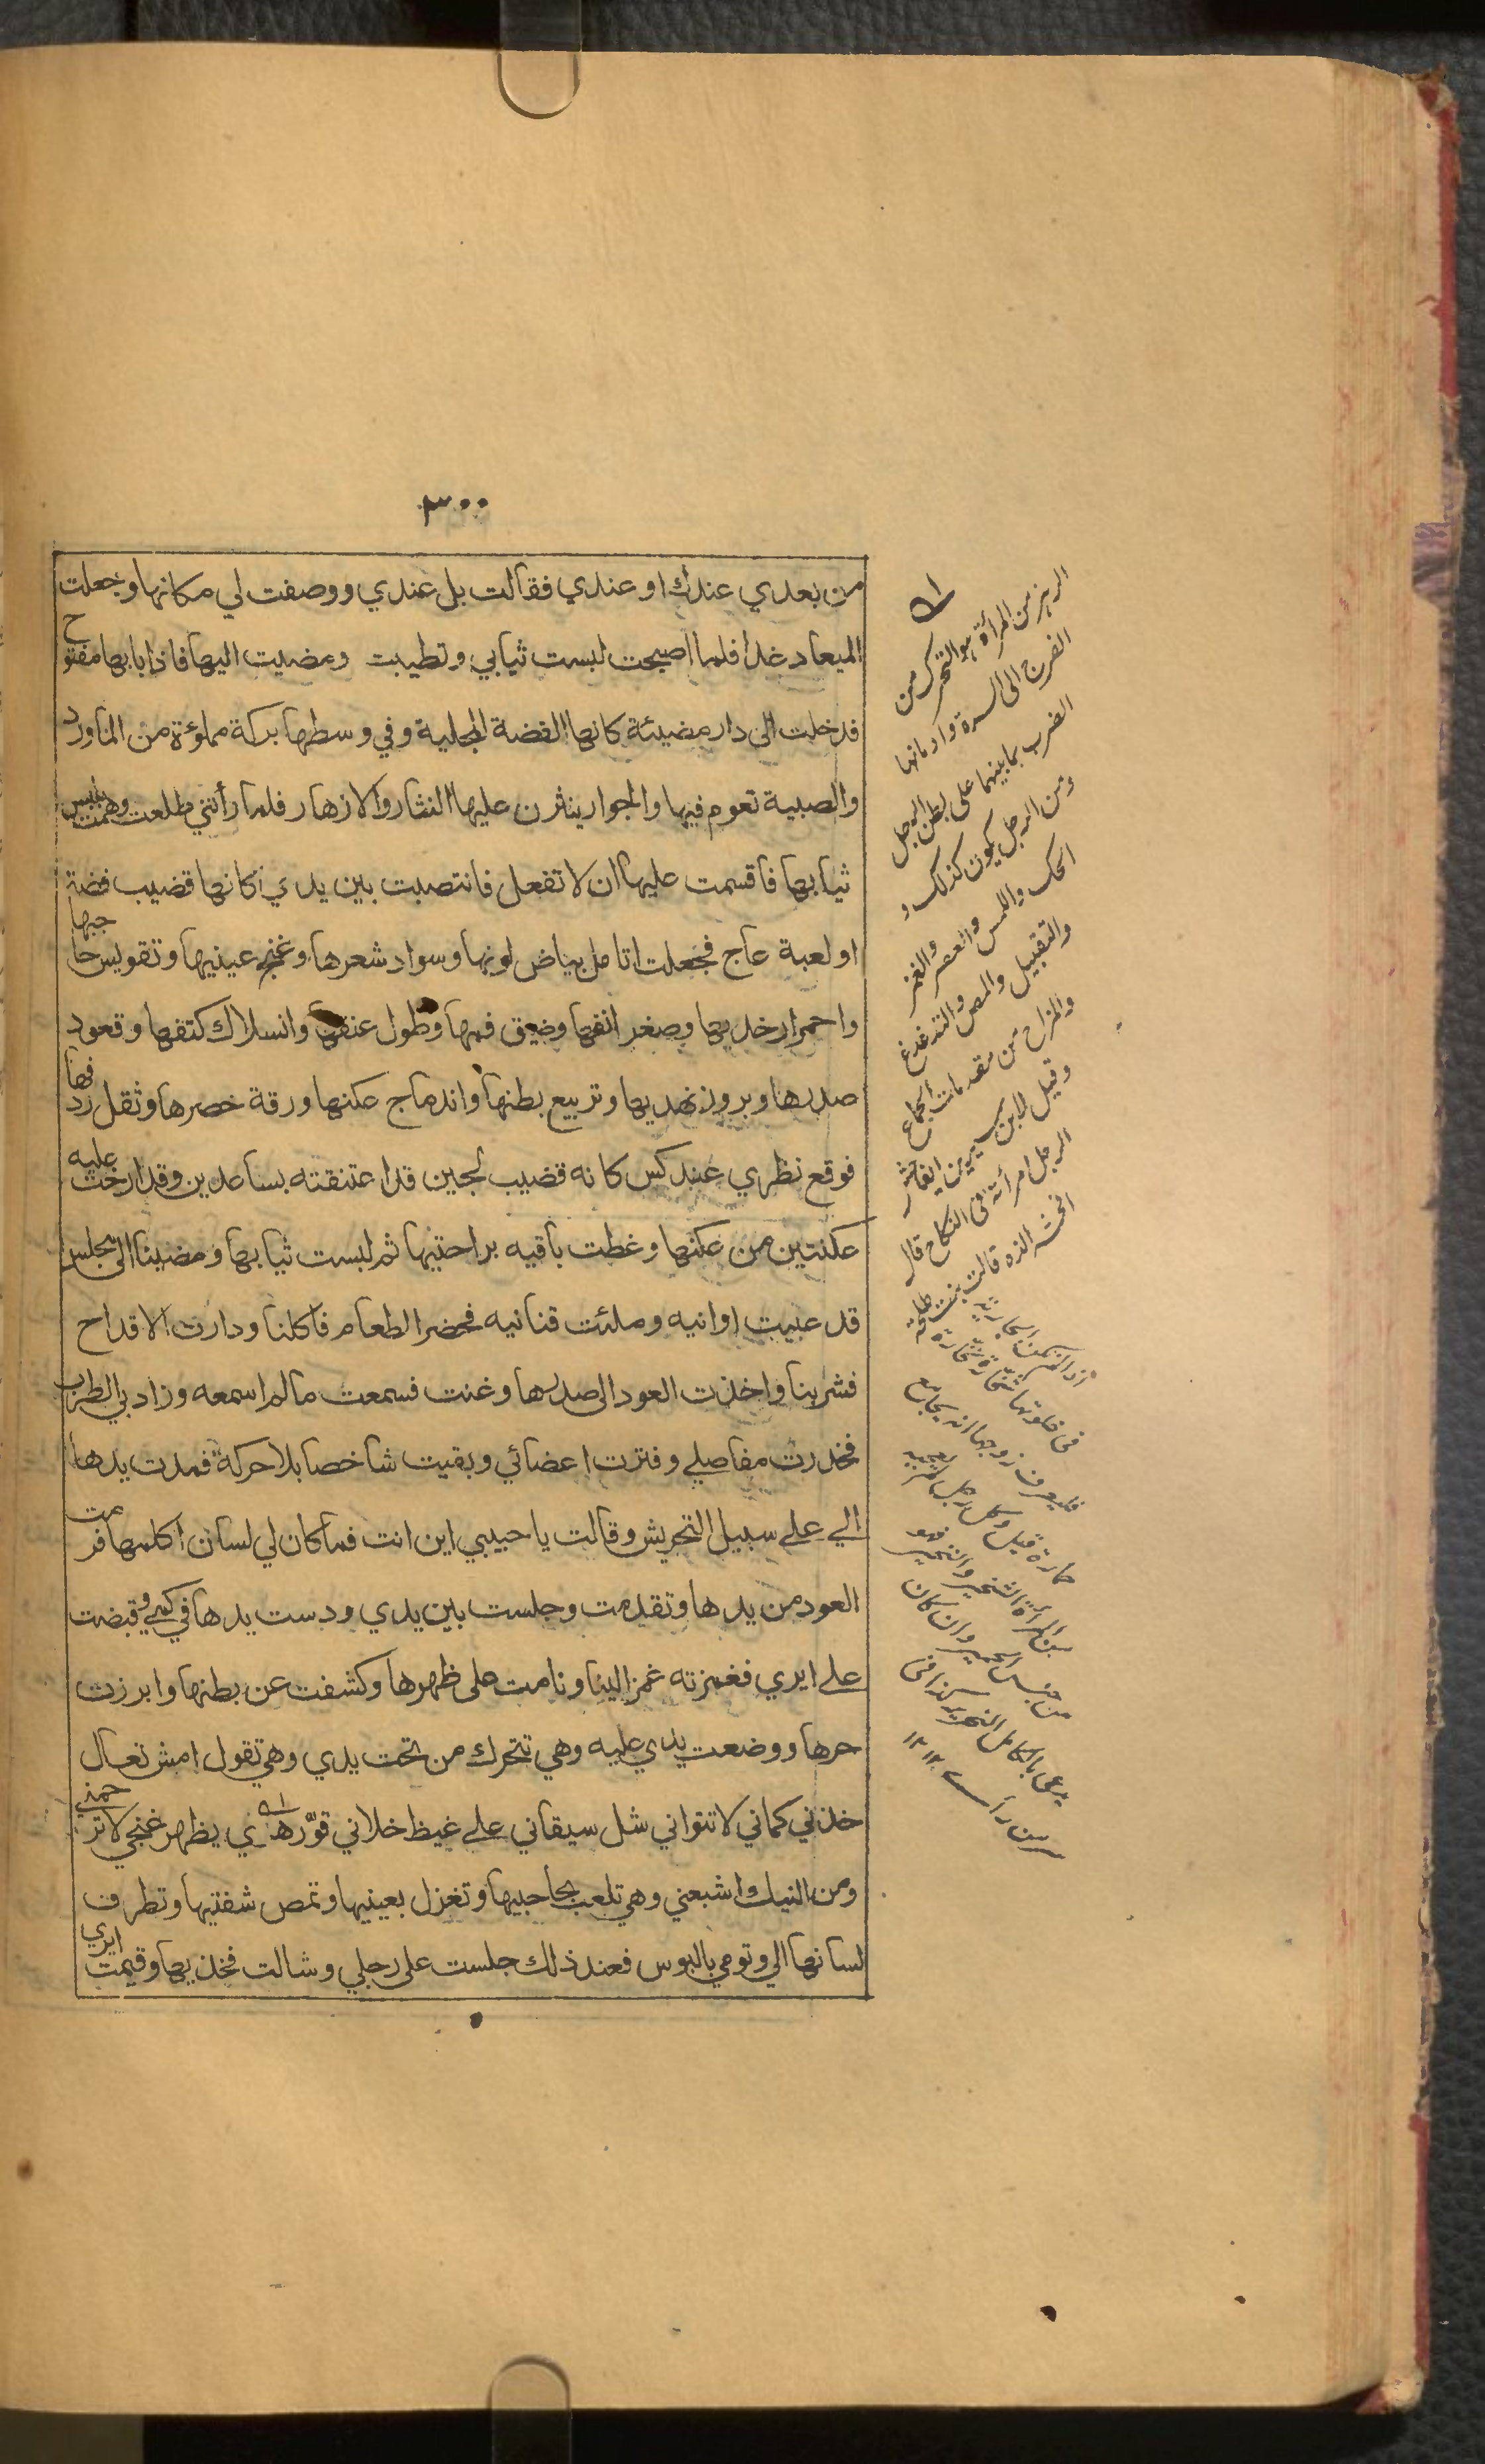 ٣٠٠
من بعدي عندك او عندي فقالت بل عندي ووصفت لي مكانها وجعلت
الميعاد غدا فلما اصبحت لبست ثيابي وتطيبت ومضيت اليها فاذا بابها مفتوح
فدخلت الى دار مضيئة كانها الفضة المجلية وفي وسطها بركة مملوءة من الماورد
والصبية تعوم فيها والجوار ينثرن عليها النثار والازهار فلما رأتني طلعت وهمت بلبس
ثيابها فاقسمت عليها ان لا تفعل فانتصبت بين يدي كانها قضيب فضة
او لعبة عاج فجعلت اتامل بياض لونها وسواد شعرها وغنج عينيها وتقويس حاجبها
واحمرار خديها وصغر انفها وضيق فمها وطول عنقها وانسلاك كتفها وقعود
صدرها وبروز نهديها وتربيع بطنها واندماج عكنها ورقة خصرها وثقل ردفها
فوقع نظري عند كس كانه قضيب لجين قد اعتنقته بساعدين وقد ارخت عليه
عكنتين من عكنها وغطت باقيه براحتيها ثم لبست ثيابها ومضينا الى مجلس
قد عبيت اوانيه وملئت قنانيه فحضر الطعام فاكلنا ودارت الاقداح
فشربنا واخذت العود الى صدرها وغنت فسمعت مالم اسمعه وزاد بي الطرب
فخدرت مفاصلي وفترت اعضائي وبقيت شاخصا بلا حركة فمدت يدها
الي علي سبيل التحريش وقالت يا حبيبي اين انت فما كان لي لسان اكلمها فرمت
العود من يدها وتقدمت وجلست بين يدي ودست يدها في كمي وقبضت
علي ايري فغمزته غمزا لينا ونامت على ظهرها وكشفت عن بطنها وابرزت
حرها ووضعت يدي عليه وهي تتحرك من تحت يدي وهي تقول امش تعال
خذني كماني لا تتواني شل سيقاني علي غيظ خلاني قوّرها ي يظهر غنجي لا ترحمني
ومن النيك اشبعني وهي تلعب بحاجبيها وتغزل بعينيها وتمص شفتيها وتطرف
لسانها الي وتومي بالبوس فعند ذلك جلست على رجلي وشالت فخذيها وقيمت ايري
الرهز من المرأة هو التحرك من
الفرج الى السرة وادمانها
الضرب بما بينهما على بطن الرجل
ومن الرجل يكون كذلك و
الحك واللمس والعصر والغمز
والتقبيل والمص والتدغدغ
والمزاح من مقدمات الجماع
وقيل لابن سيرين ايفاحش
الرجل امرأته في النكاح قال
افحشه الذه قالت بنت طلحة
اذا لم تكن الجارية
في خلوتها شخارة نخارة
فليعرف زوجها انه يجامع
حمارة قيل وكل
بين المرأة الشخير والنخير فهو
من جنس الحمير وان كان
يدعى بالكامل النحرير